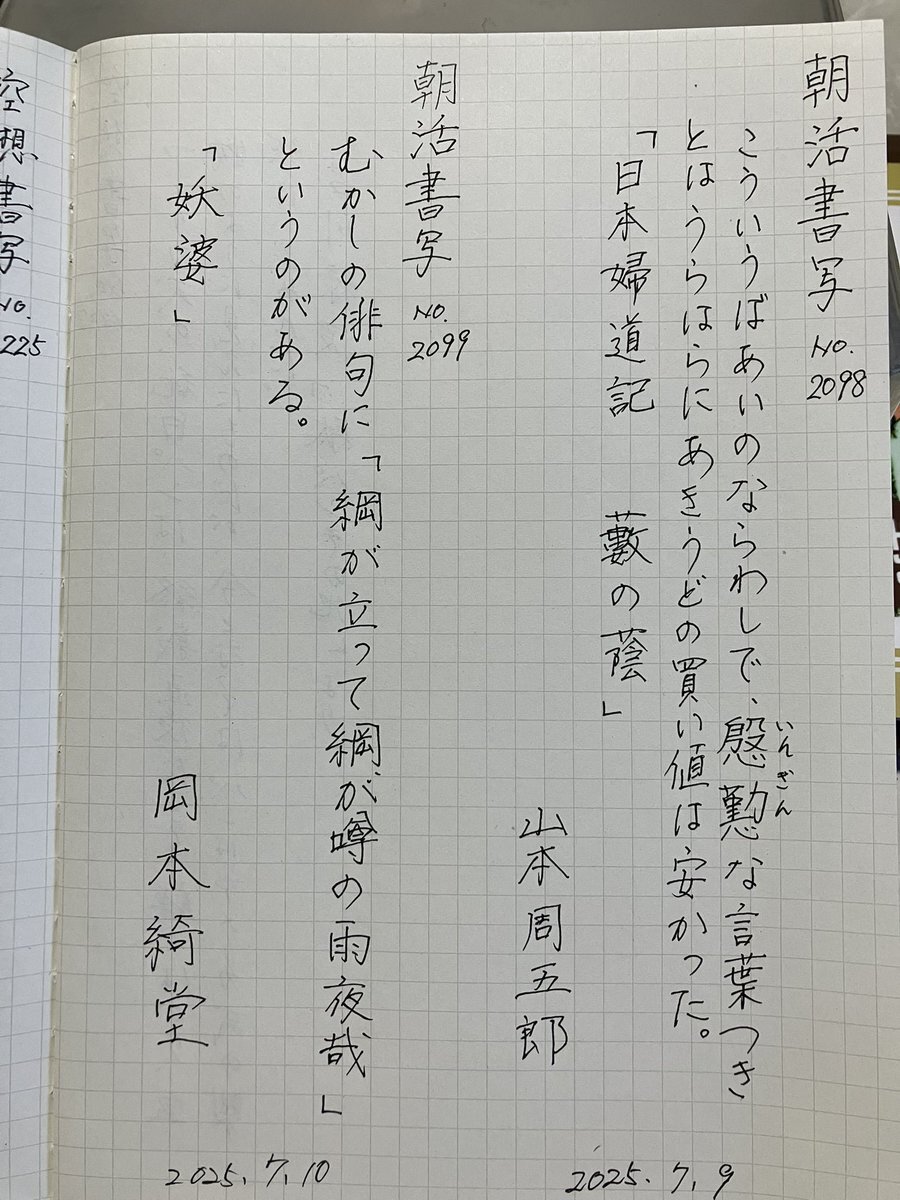 朝活書写 No. 2098
こういうばあいのならわしで、慇懃な言葉つき
いんぎん
とはうらはらにあきうどの買い値は安かった。
「日本婦道記 藪の蔭」
山本周五郎
2025.7.9
朝活書写 No. 2099
むかしの俳句に「綱が立って綱が噂の雨夜哉」
というのがある。
「妖婆」
岡本綺堂
2025.7.10
空想書写 No. 225